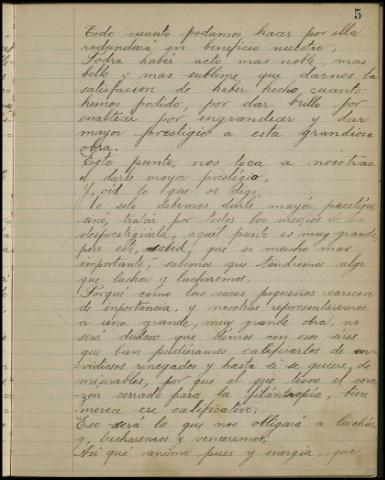 5
Todo cuanto podamos hacer por ella
redundara en beneficio nuestro,
Podra haber acto mas noble, mas
bello y mas sublime que darnos la
satisfacion de haber hecho cuanto
hemos podido, por dar brillo por
enaltecer por ingrandecer y dar
mayor prestigio a esta grandiosa
obra.
Este punto, nos toca a nosotras
el darle mayor prestigio,
Y, oid lo que os digo,
No solo debemos darle mayor prestigio,
sinó, tratar por todos los medios de no
desprestigiarla, aquel punto es muy grande,
pero este, sabed, que es mucho mas
importante, sabemos que tendremos algo
que luchar y lucharemos.
Porqué como las cosas pequeñas carecen
de importancia, y nosotras representaremos
a una grande, muy grande obra, no
será dudoso que demos con esos séres
que bien pudieramos calificarlos de en-
vidiosos renegados y hasta si se quiere, de
miserables, por que el que tiene el cora
zon cerrado para la filantropia, bien
merece ese calificativo;
Eso será lo que nos obligará a luchar
y, lucharemos y venceremos;
Asi qué animo pues y energia, que